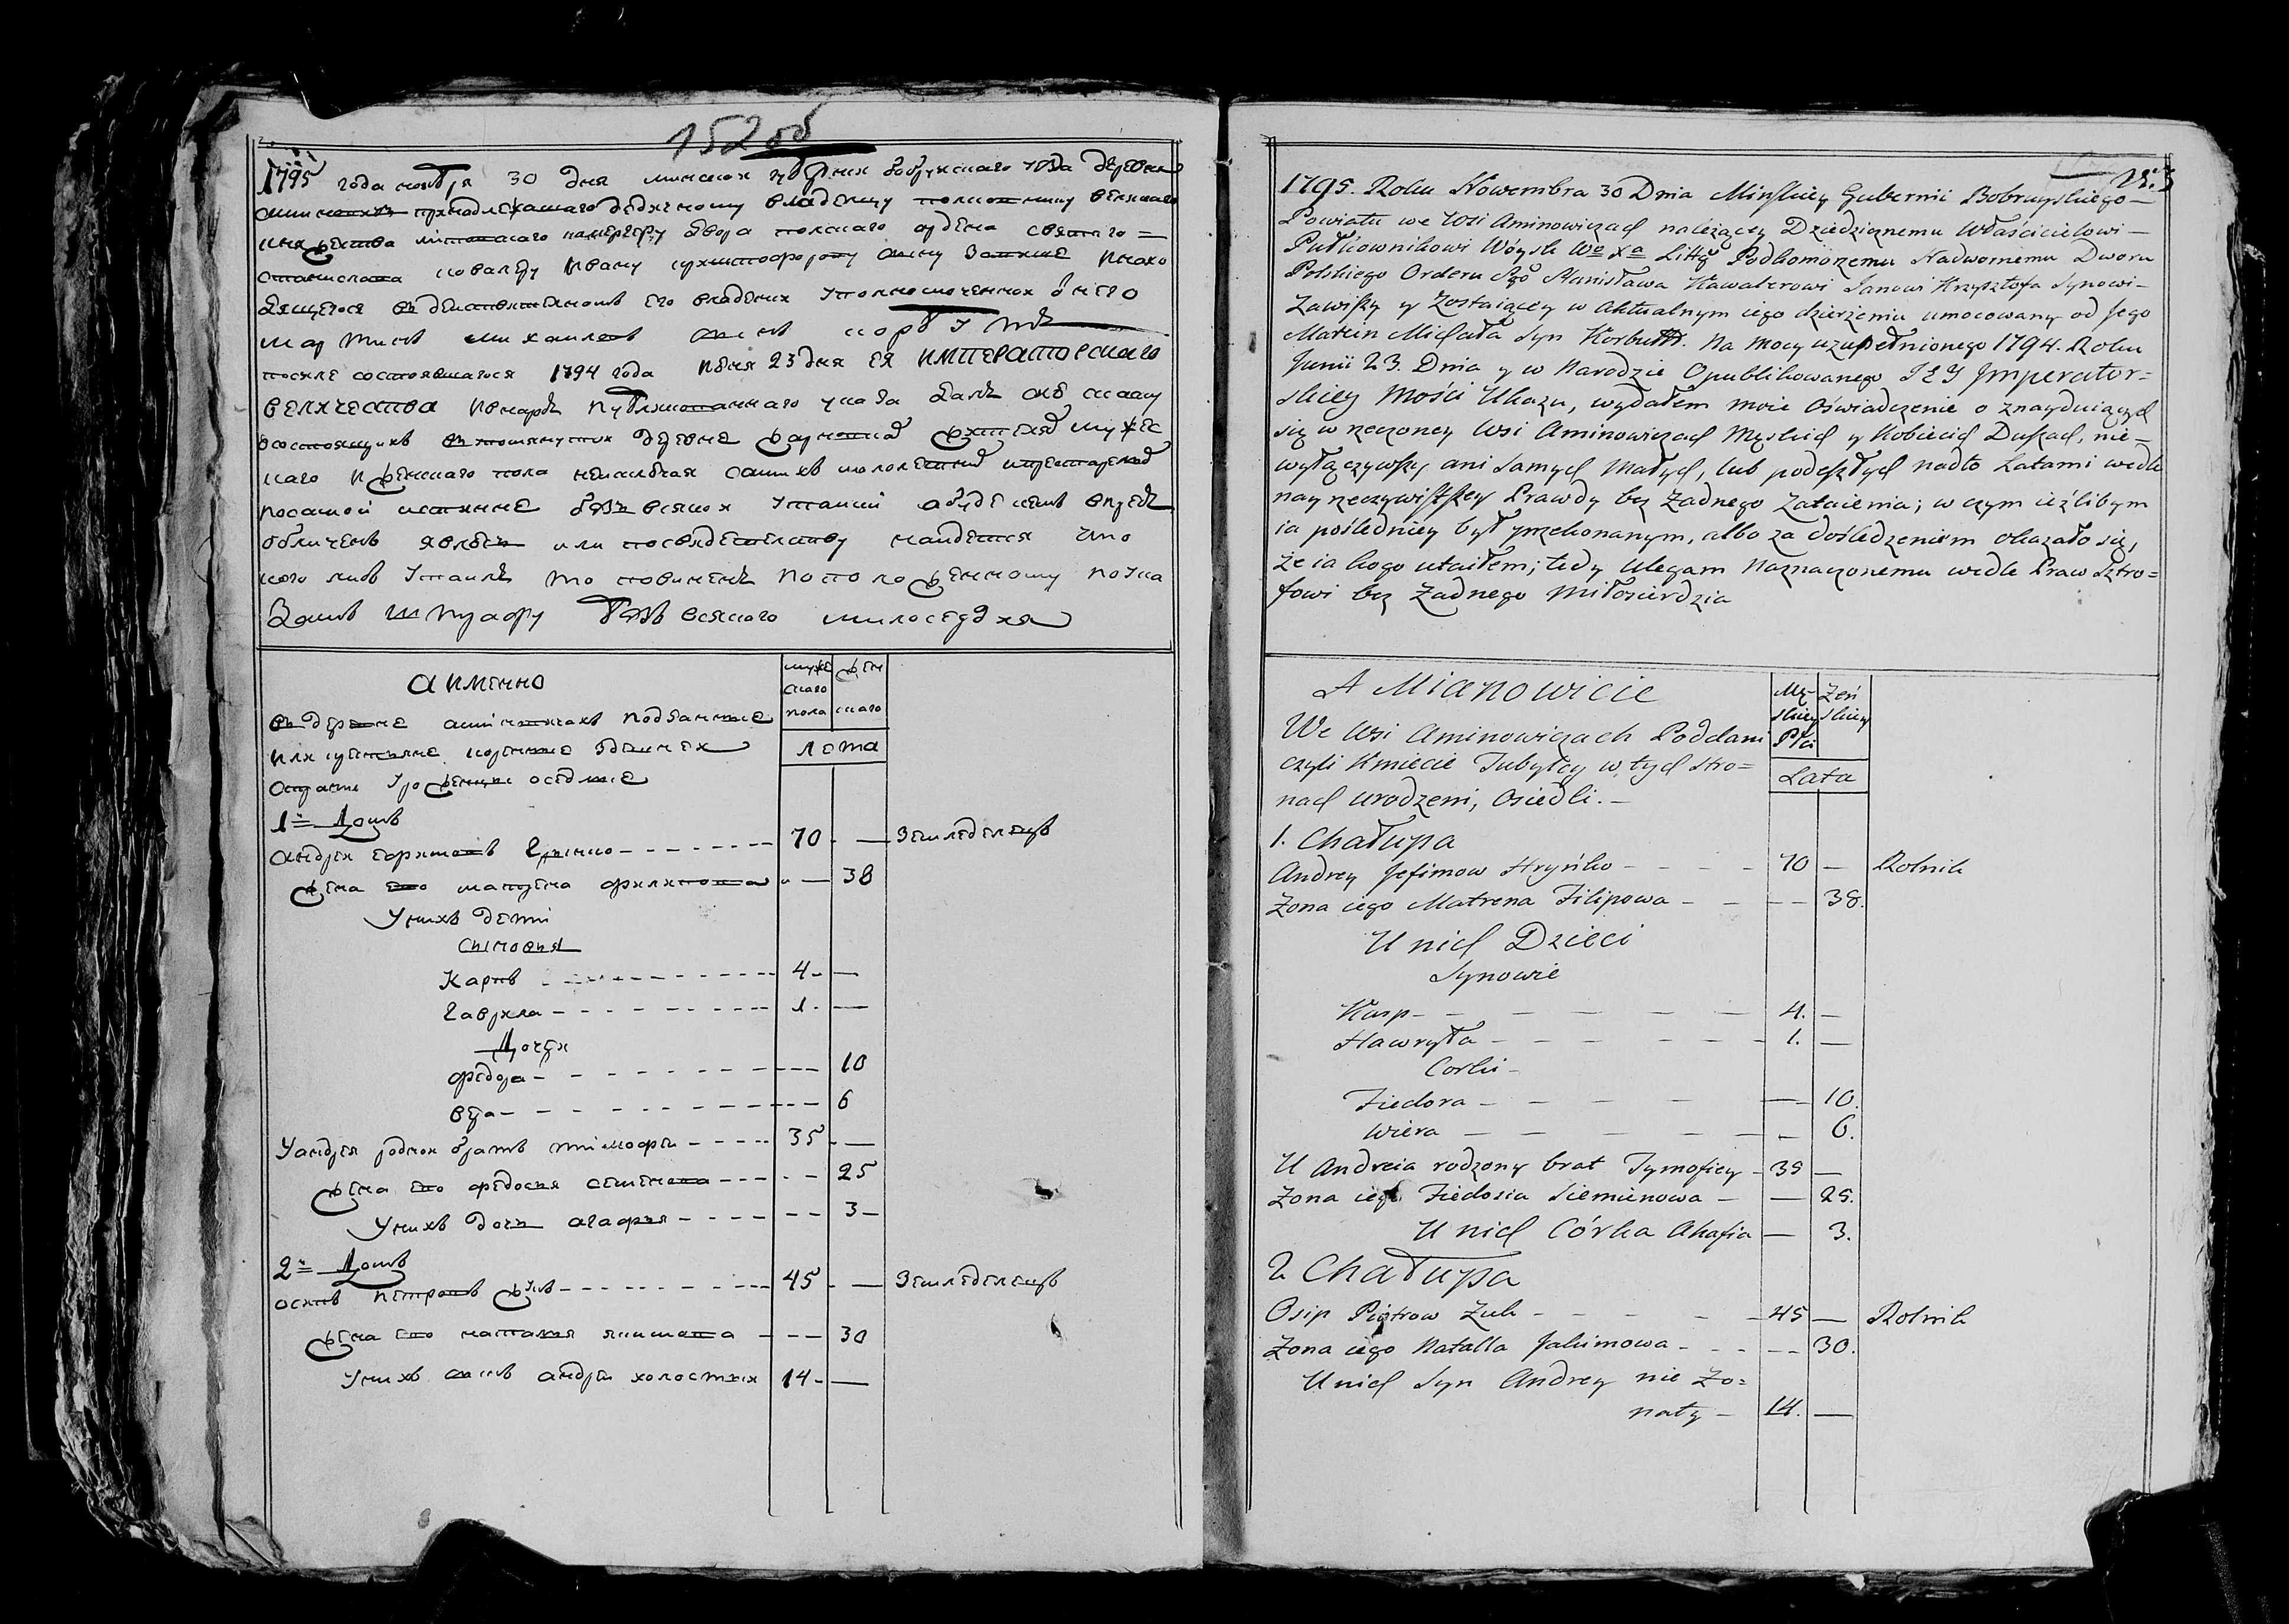 152 об
1795 года ноября 30 дня минской губернии бобруйского уезда деревни
принадлежащаго дедичному владельцу полковнику
княжества литовского камергеру двора польского ордена святаго
станислава кавалеру Ивану сыну
в действительном его владении уполномоченной онего
мартинъ михаиловъ сынъ корбутъ
после состоявшагося 1794 года Июня 23 дня ЕЯ ИМПЕРАТОРСКАГО
ВЕЛИЧЕСТВА публикованнаго указа далъ
состоящихъ в деревне мужес
каго и женскаго пола самихъ малолетных
истинне безъ всякой утайки а буде кемъ впредь
обличенъ явлюсь или по свидетельству найдется что
кого либо утаилъ то повиненъ положенному по ука
замъ штрафу безъ всякого милосердия
а имЕнно
в деревне подданные
или крестьяне коренные
оседлые
муже
скаго
пола
жен
скаго
лета
1й Домъ
андрей гринко 70 — земледелецъ
жена его матрена филипова — 38
У нихъ дети
сыновья
Карпъ 4 —
гаврила 1 —
Дочери
федора — 10
вера — 6
У андрея родной братъ тимофей 35 —
жена его федосия семенова — 25
У нихъ дочь агафия — 3
2й Домъ
осипъ петровъ жукъ 45 — земледелецъ
жена его наталия якимова — 30
У нихъ сынъ андрей холостых 14 —
1795. Roku Nowembra 30 Dnia Minskiey Gubernii Bobruyskiego
Powiatu we Wsi Aminowiczach należącey Dziedzicznemu Właścicielowi
Pułkownikowi Wóysk Wo Xa Littgo Podkomorzemu Nadwornemu Dworu
Polskiego Orderu Sgo Stanisława Kawalerowi Janowi Krzysztofa Synowi
Zawiszy y Zostaiącey w Aktualnym iego dzierzeniu umocowany od Jego
Marcin Michała Syn Korbutt. Na mocy uzupełnionego 1794. Roku
Junii 23. Dnia y w Narodzie Opublikowanego JEY Imperator=
skiey Mości Ukazu, wydałem moie Oświadczenie o znayduiących
się w rzeczoney Wsi Aminowiczach Męskich y Kobiecich Duszach, nie=
wyłączywszy ani Samych Małych, lub podeszłych nadto Latami wedle
nayrzeczywistszey Prawdy bez Żadnego Zataienia; w czym ieźlibym
ia pośledniey był przekonanym, albo za dośledzeniem okazało się,
że ia kogo utaiłem; tedy Ulegam Naznaczonemu wedle Praw Sztro=
fowi bez Żadnego Miłosierdzia
A Mianowicie
We Wsi Aminowiczach Poddani
czyli Kmiecie Tubylcy w tych stro=
nach urodzeni, Osiedli.
Mę-
skiey
Płci
Żeń
skiey
Lata
1. Chałupa
Andrey Jefimow Hryńko 70 — Rolnik
Żona iego Matrena Filipowa — 38.
U nich Dzieci
Synowie
Karp 4. —
Hawryła 1. —
Corki
Fiedora — 10.
Wiera — 6.
U Andreia rodzony brat Tymofiey 35 —
Żona iego Fiedosia Siemienowa — 25.
U nich Córka Ahafia — 3.
2 Chałupa
Osip Piotrow Żuk 45 — Rolnik
Żona iego Natalla Jakimowa — 30.
U nich Syn Andrey nie Żo=
naty 14. —